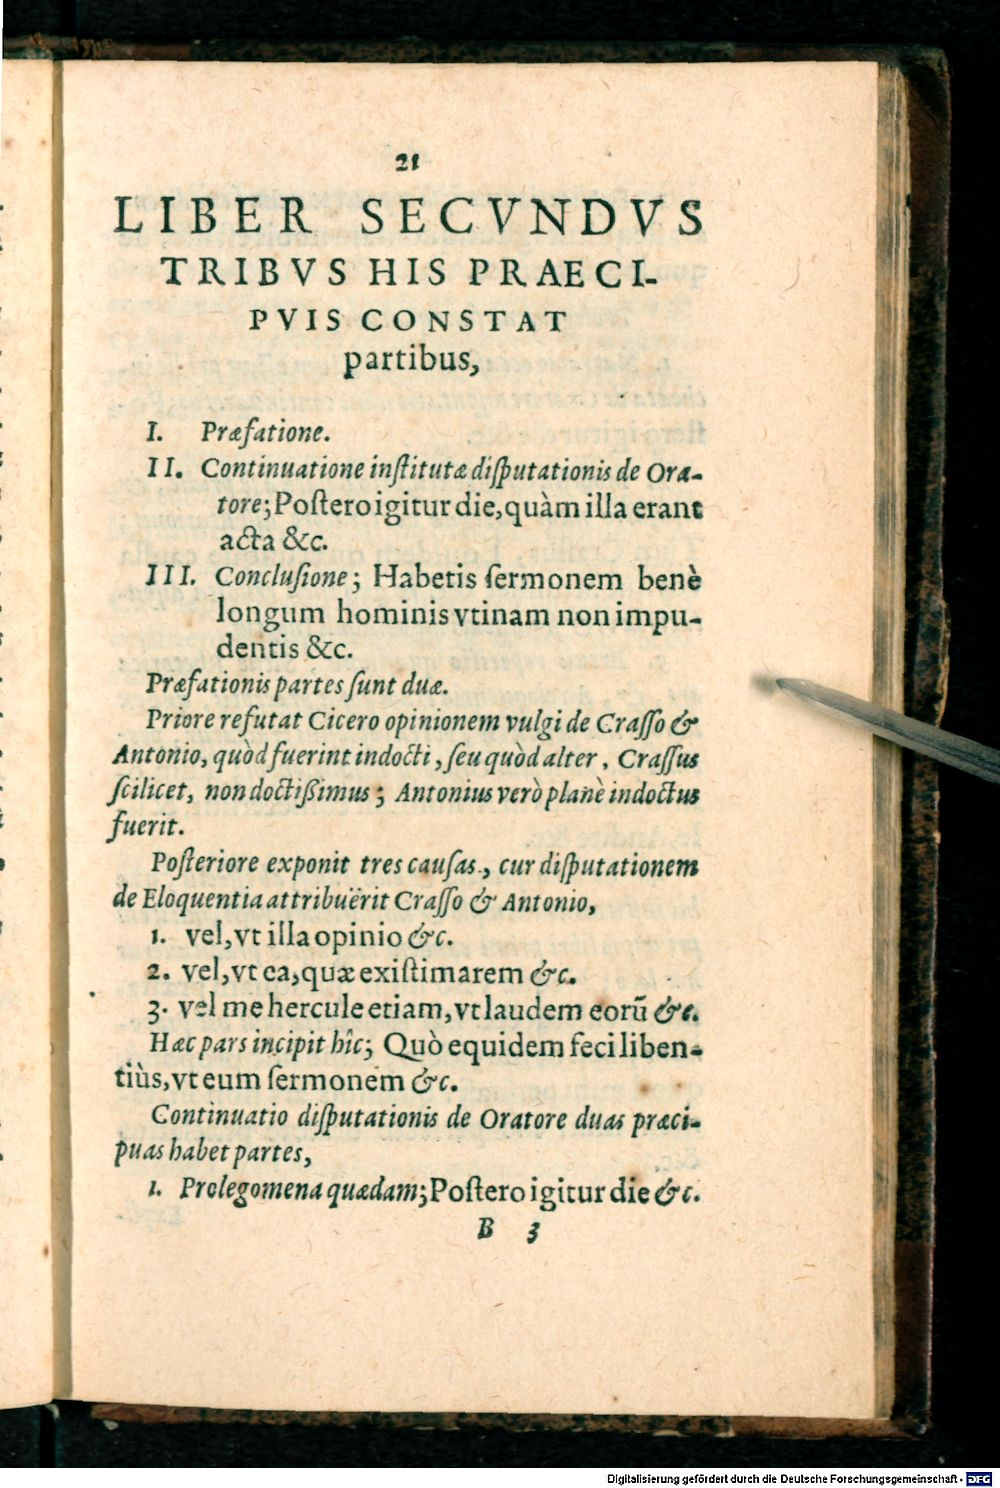 21
LIBER SECVNDVS
TRIBVS HIS PRAECI-
PVIS CONSTAT
partibus,
I. Præfatione.
II. Continuatione institutæ disputationis de Ora-
tore; Postero igitur die, quàm illa erant
acta &c.
III. Conclusione; Habetis sermonem benè
longum hominis vtinam non impu-
dentis &c.
Præfationis partes sunt duæ.
Priore refutat Cicero opinionem vulgi de Crasso &
Antonio, quòd fuerint indocti, seu quòd alter, Crassus
scilicet, non doctißimus; Antonius verò planè indoctus
fuerit.
Posteriore exponit tres causas, cur disputationem
de Eloquentia attribuërit Crasso & Antonio,
1. vel, vt illa opinio &c.
2. vel, vt ea, quæ existimarem &c.
3. vel me hercule etiam, vt laudem eorū &c.
Hæc pars incipit hîc; Quò equidem feci liben-
tiùs, vt eum sermonem &c.
Continuatio disputationis de Oratore duas præci-
puas habet partes,
1. Prolegomena quædam; Postero igitur die &c.
B 3
Digitalisierung gefördert durch die Deutsche Forschungsgemeinschaft - DFG